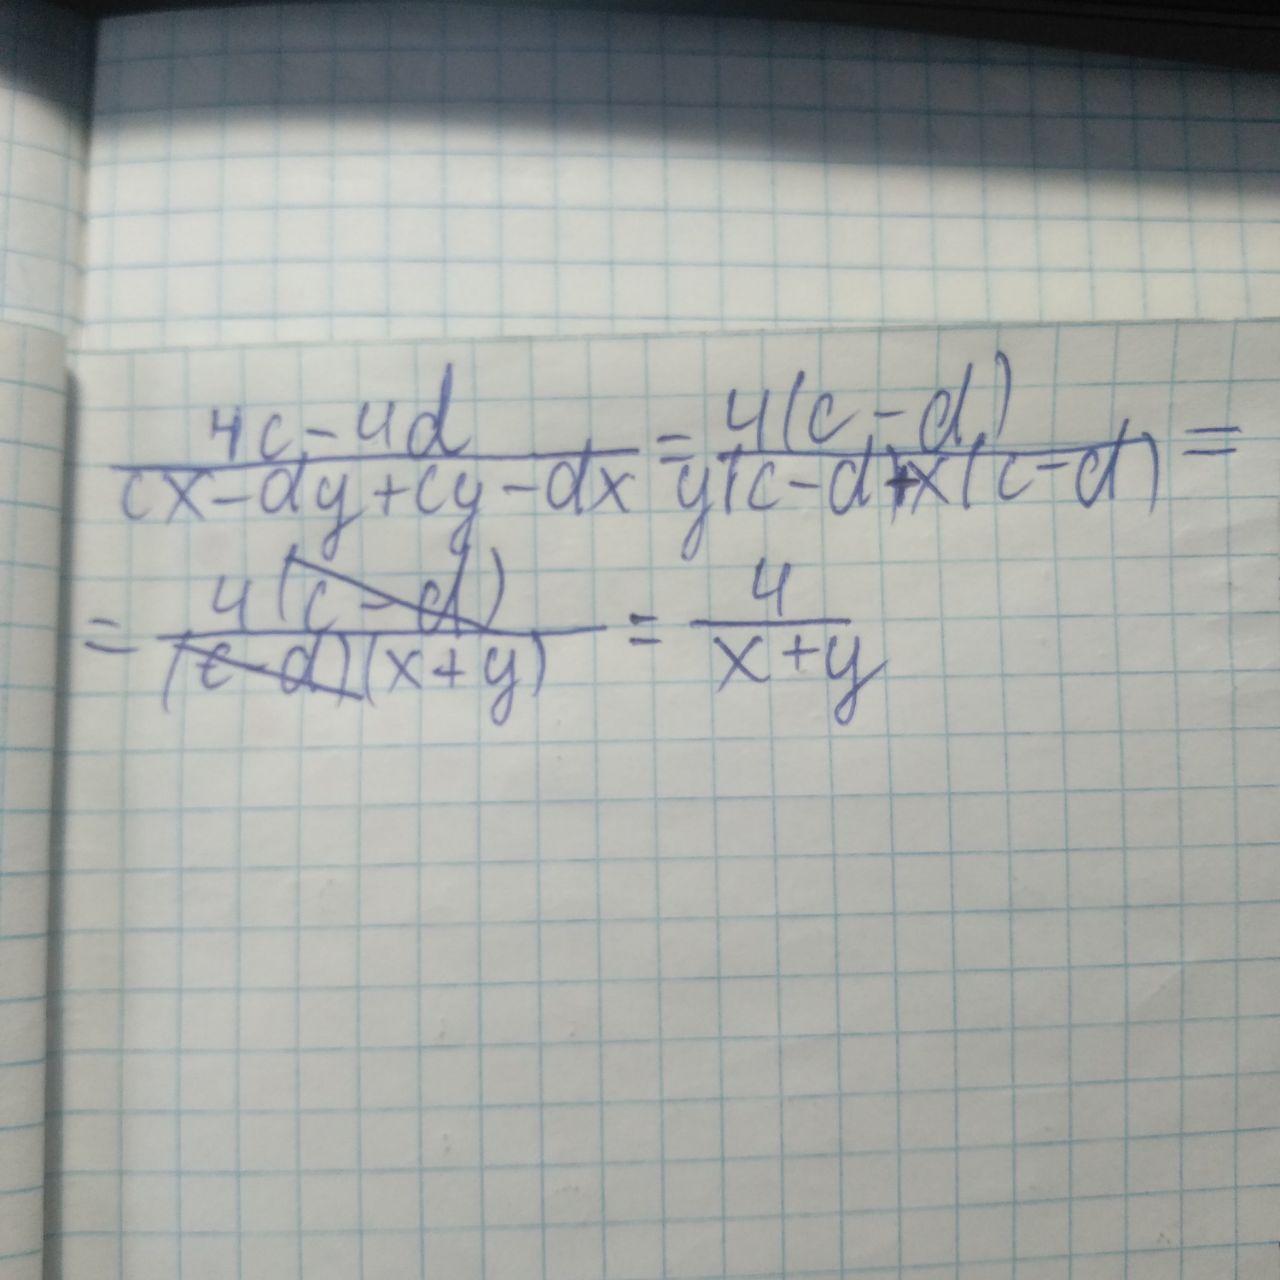 (4c-4d)/(cx-dy+cy-dx) = 4(c-d)/(y(c-d)+x(c-d)) =
= 4(c-d)/((c-d)(x+y)) = 4/(x+y)